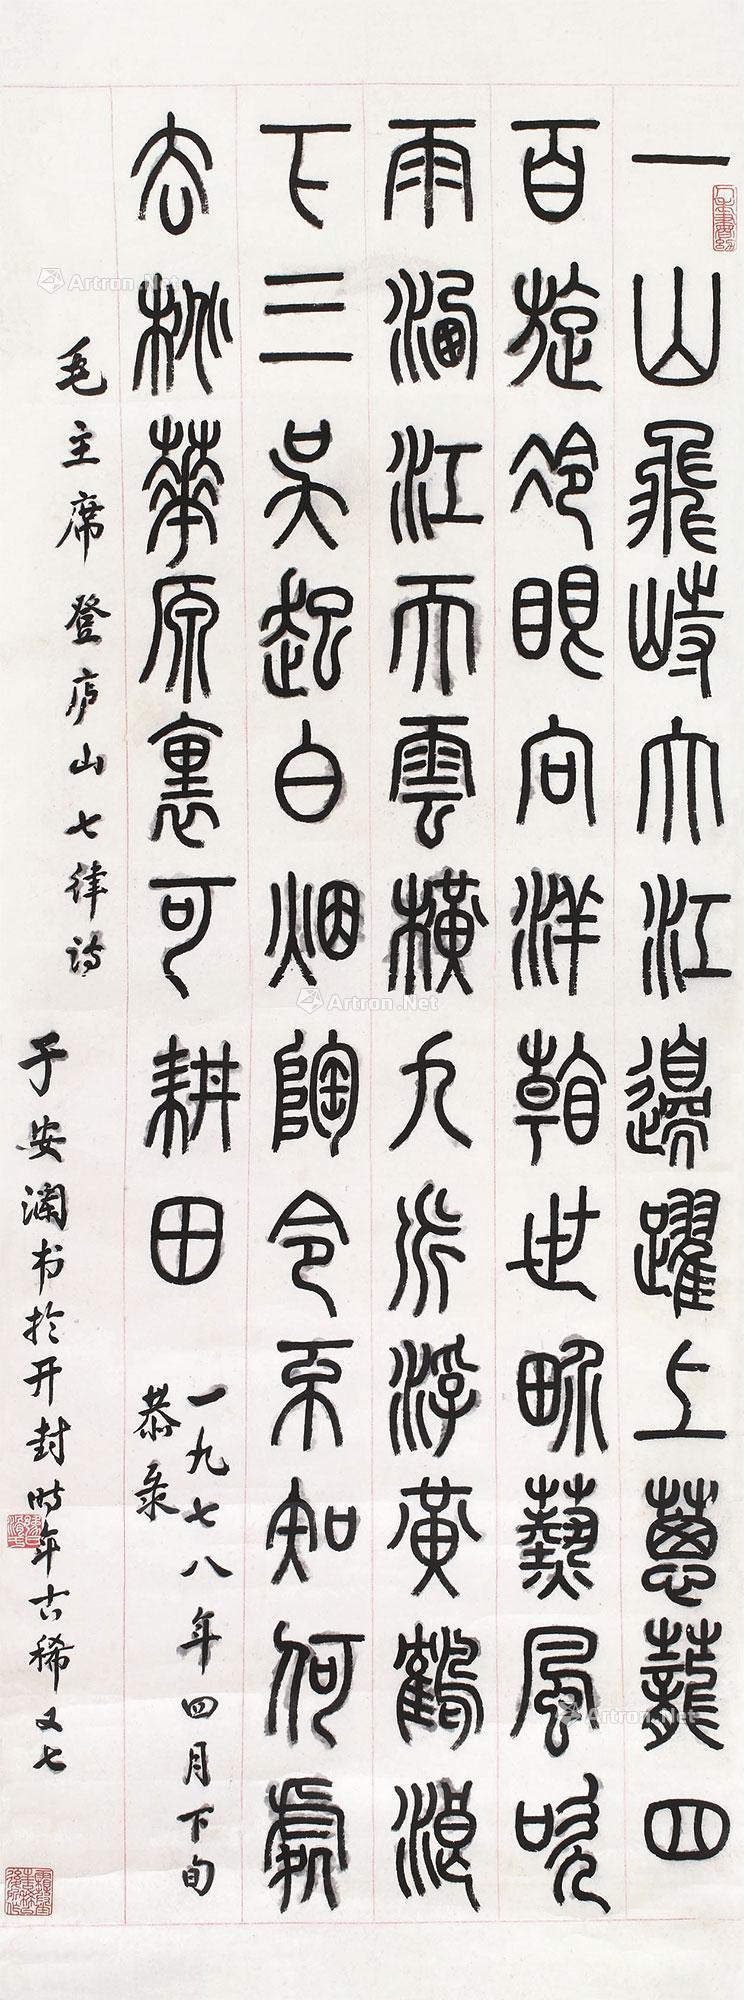 一山飛峙大江邊躍上蔥蘢四
百旋冷眼向洋看世畍熱風吹
雨洒江天雲橫九派浮黃鶴浪
下三吳起白烟陶令不知何處
去桃華原裏可耕田
一九七八年四月下旬
恭录
毛主席登庐山七律诗
于安澜书於开封时年古稀又七
Artron.Net
Artron.Net
Artron.Net